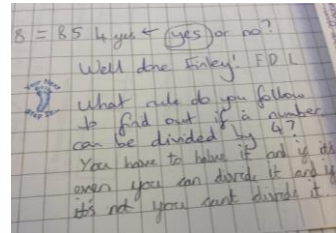 8 = 85 4 yes ← yes or no?
Well done Finley! F D L
What rule do you follow
to find out if a number
can be divided by 4?
You have to halve it and if it's
even you can divide it and if
it's not you cant divide it.